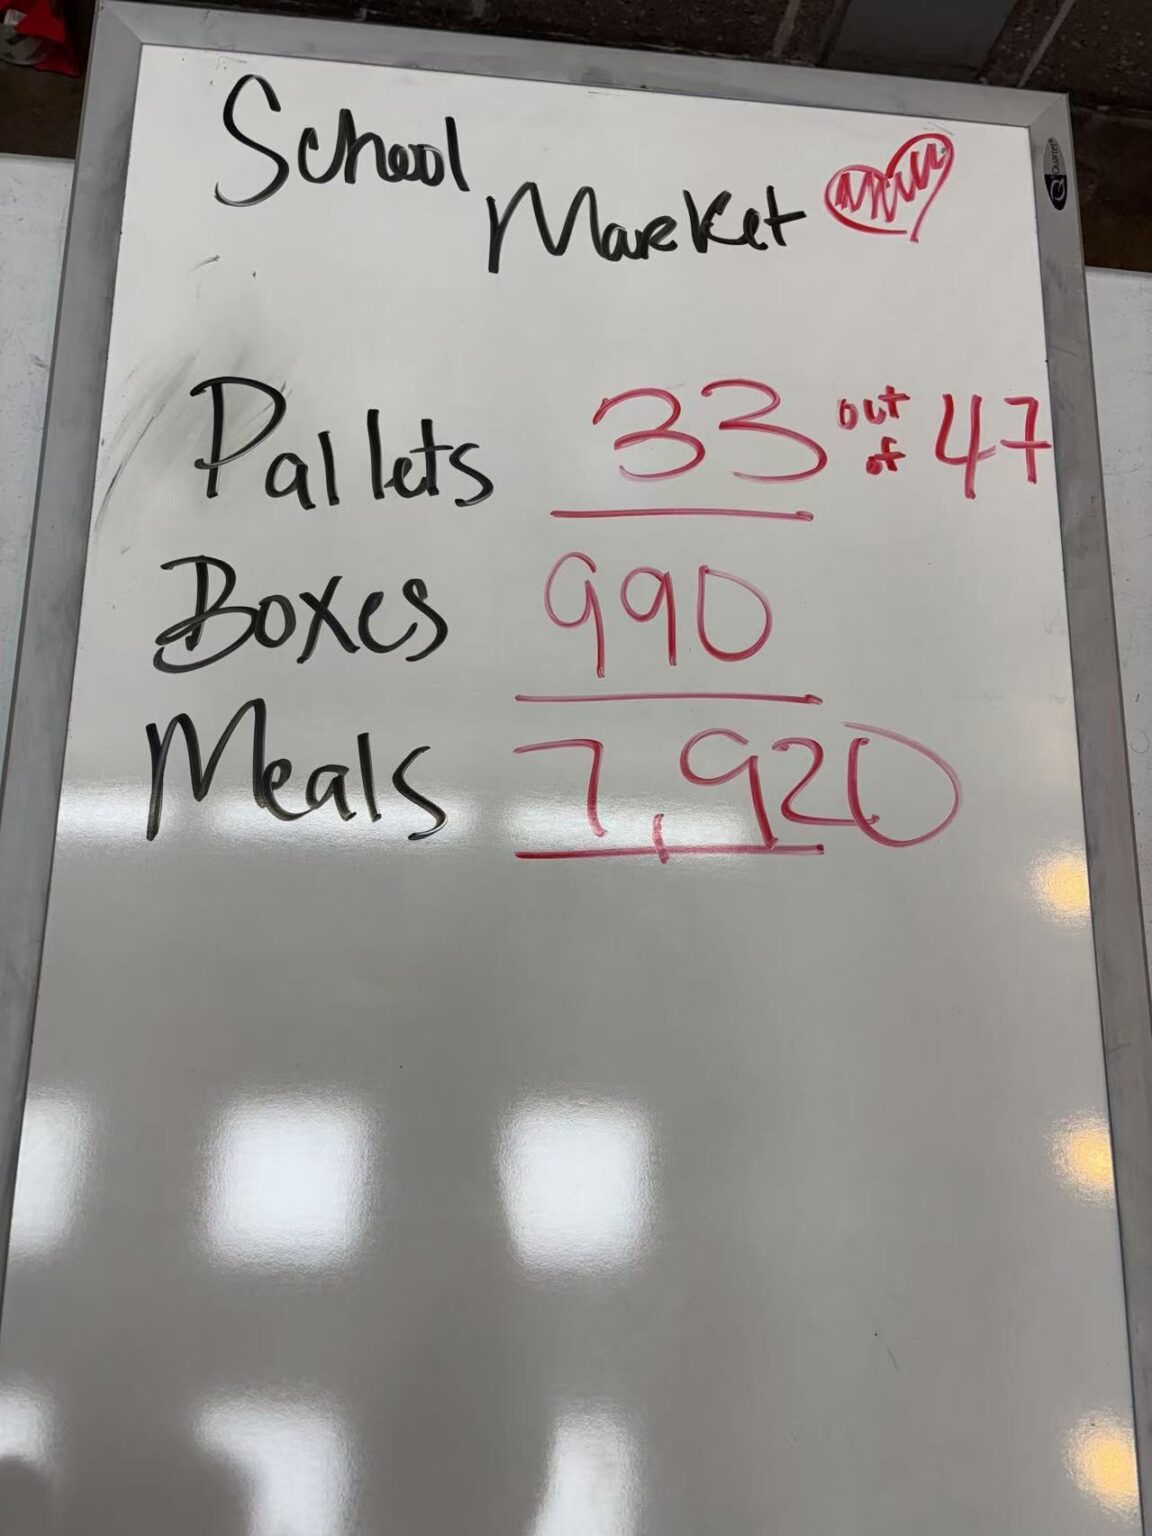 School
Market
Pallets 33 out of 47
Boxes 990
Meals 7,920
Quartet